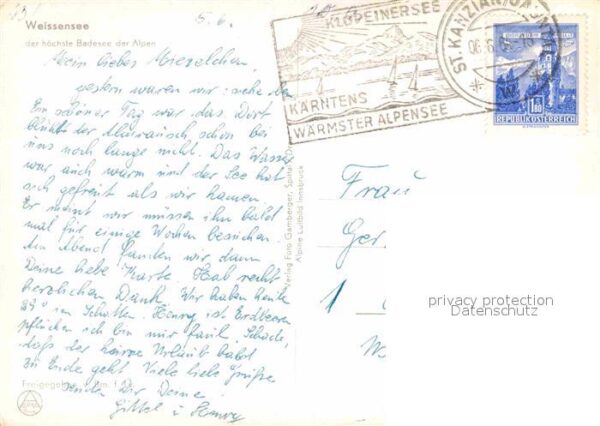 5. 6.
Weissensee
der höchste Badesee der Alpen
Mein liebes
gestern waren wir siehe da
Ein schöner Tag war das. Dort
blüht der Almrausch, schon bei
uns noch lange nicht. Das Wasser
war auch warm und der See hat
sich gefreut als wir kamen.
Er meint wir müssen ihn bald
mal für einige Wochen besuchen.
Am Abend fanden wir dann
Deine liebe Karte. Hab recht
herzlichen Dank. Wir haben heute
29° im Schatten. Henry ist Erdbeeren
pflücken ich bin nur faul. Schade,
daß der Urlaub bald
zu Ende geht. Viele liebe Grüße
senden Dir Deine
u. Henry
Freigegeben
Verlag Foto Gamberger, Spittal/Drau
Alpine Luftbild Innsbruck
KLOPEINERSEE
KÄRNTENS
WÄRMSTER ALPENSEE
ST. KANZIAN
1.80
REPUBLIK ÖSTERREICH
Frau
Ger
1
W
privacy protection
Datenschutz